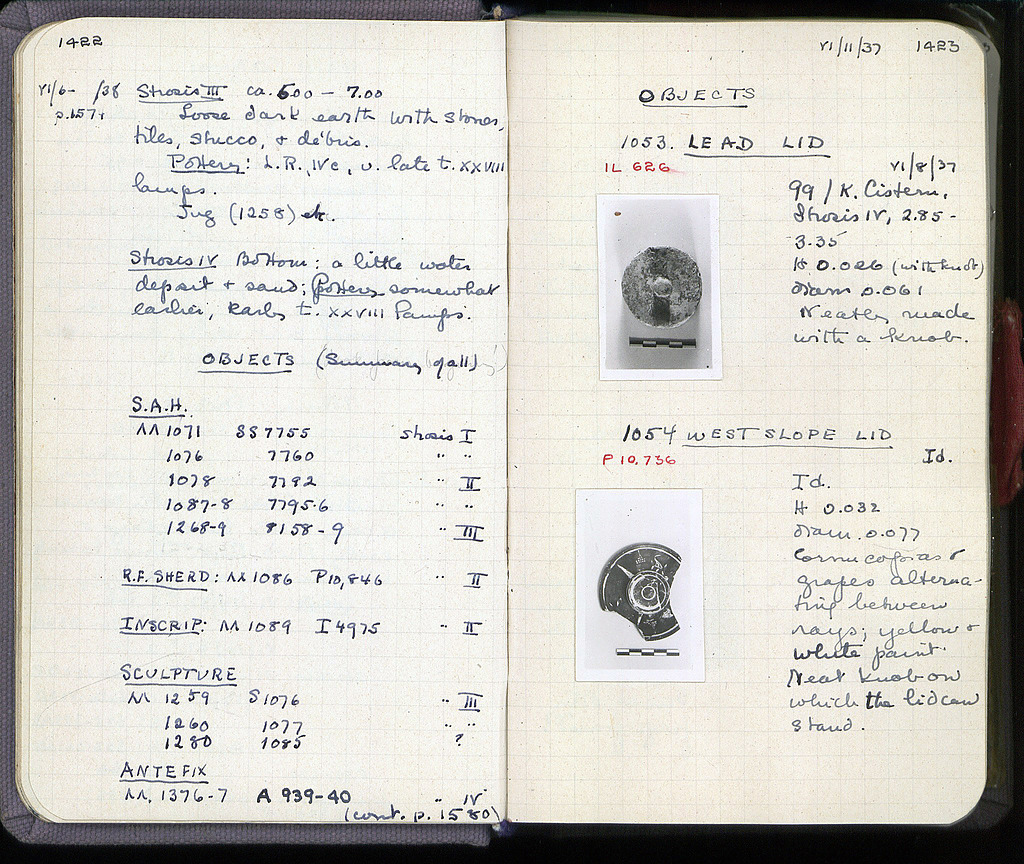 1422
VI/6- /38 Strosis III ca. 5.00 - 7.00
Loose dark earth with stones,
tiles, stucco, & débris.
Pottery: L.R., IVc, v. late t. XXVIII
lamps.
Jug (1258) etc.
Strosis IV Bottom: a little water
deposit & sand; pottery somewhat
earlier, early t. XXVIII lamps.
OBJECTS (Summary of all)
S.A.H.
ΛΛ 1071 SS 7755 strosis I
1076 7760 " "
1078 7792 " II
1087-8 7795-6 " "
1268-9 8158-9 " III
R.F. SHERD: ΛΛ 1086 P10,846 " II
INSCRIP: ΛΛ 1089 I 4975 " II
SCULPTURE
ΛΛ 1259 S 1076 " III
1260 1077 " "
1280 1085 ?
ANTEFIX
ΛΛ. 1376-7 A 939-40 " IV
(cont. p. 1580)
VI/11/37 1423
OBJECTS
1053. LEAD LID
IL 626
VI/8/37
99/K. Cistern,
Strosis IV, 2.85-
3.35
H 0.026 (with knob)
diam 0.061
Neatly made
with a knob.
1054 WEST SLOPE LID
P 10,736
Id.
Id.
H 0.032
diam. 0.077
Cornucopias &
grapes alterna-
ting between
rays; yellow &
white paint.
Neat knob on
which the lid can
stand.